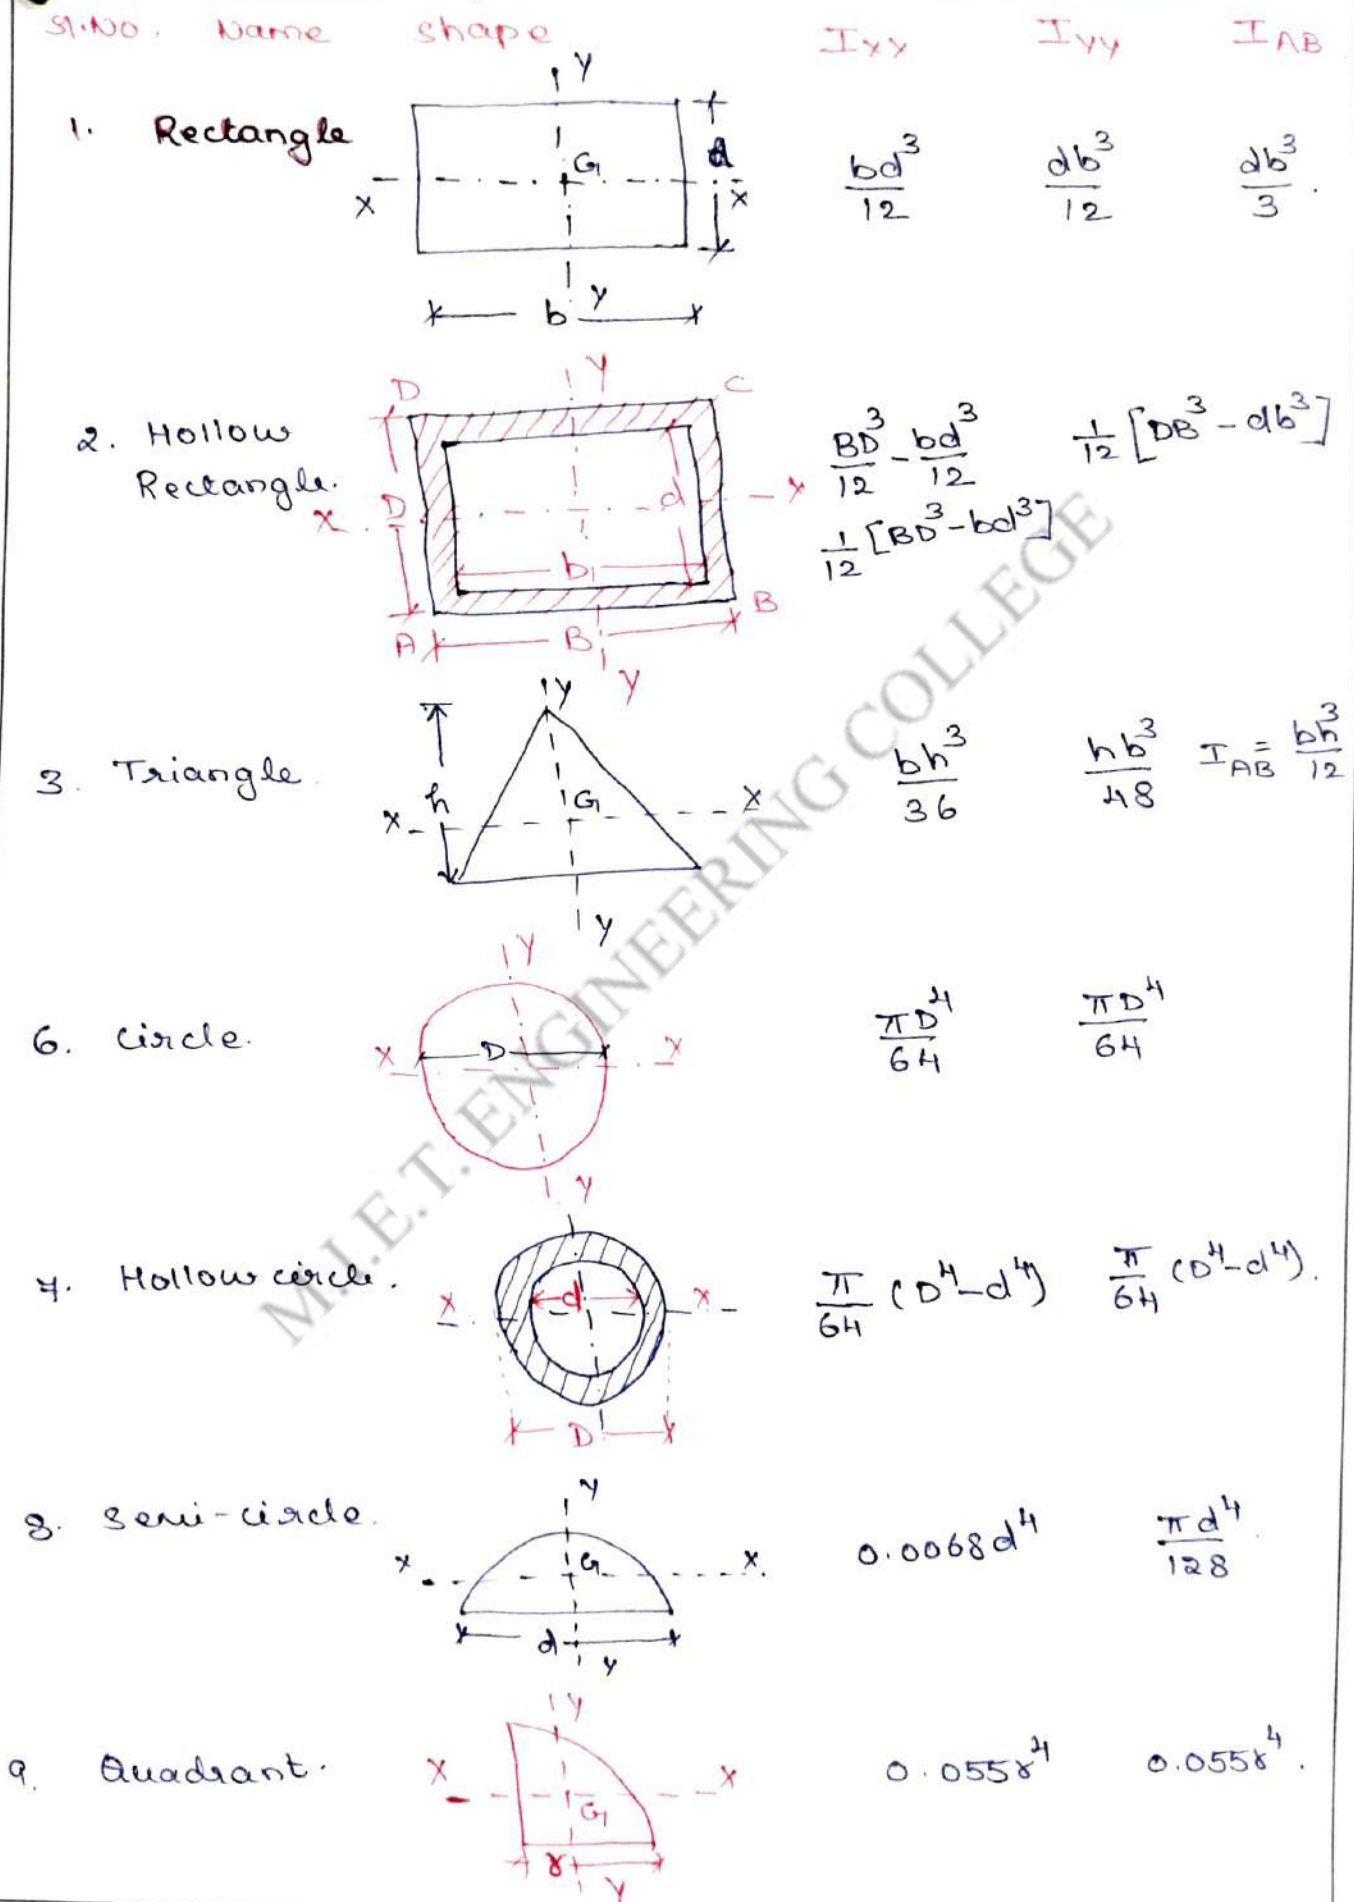 Sl.No. Name shape I_XX I_YY I_AB
1. Rectangle Y G X X d b Y bd³/12 db³/12 db³/3.
2. Hollow
Rectangle.
Y D C X D d X b₁ A B B Y
BD³/12 - bd³/12 1/12 [DB³ - db³]
1/12 [BD³ - bd³]
3. Triangle. Y h G X X Y bh³/36 hb³/48 I_AB = bh³/12
6. circle. Y X D X Y πD⁴/64 πD⁴/64
7. Hollow circle. X d X D π/64 (D⁴-d⁴) π/64 (D⁴-d⁴).
8. Semi-circle. Y X G X. d Y 0.0068d⁴ πd⁴/128.
9. Quadrant. Y X G X r Y 0.055r⁴ 0.055r⁴.
M.I.E.T. ENGINEERING COLLEGE